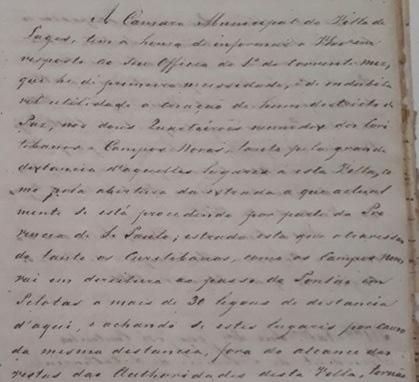 A Camara Municipal da Villa de
Lages, tem a honra de informar a V Exa em
resposta ao seu Officio de 1º do corrente mez,
que he de primeira necessidade, e de indubita
vel utilidade a creação de hum destricto de
Paz, nos dous Quarteirões nomeados dos Cori
tibanos e Campos Novos, tanto pela grande
distancia d'aquelles lugares a esta Villa, co
mo pela abertura da estrada a que actual
mente se está procedendo por parte da Pro
vincia de S. Paulo; estrada esta que atravessan
do tanto os Curitibanos, como os Campos Novos
vai em direitura ao passo do Pontão em
Pelotas a mais de 30 legoas de distancia
d'aqui, e achando se estes lugares por causa
da mesma distancia, fora do alcance das
vistas das Authoridades desta Villa,